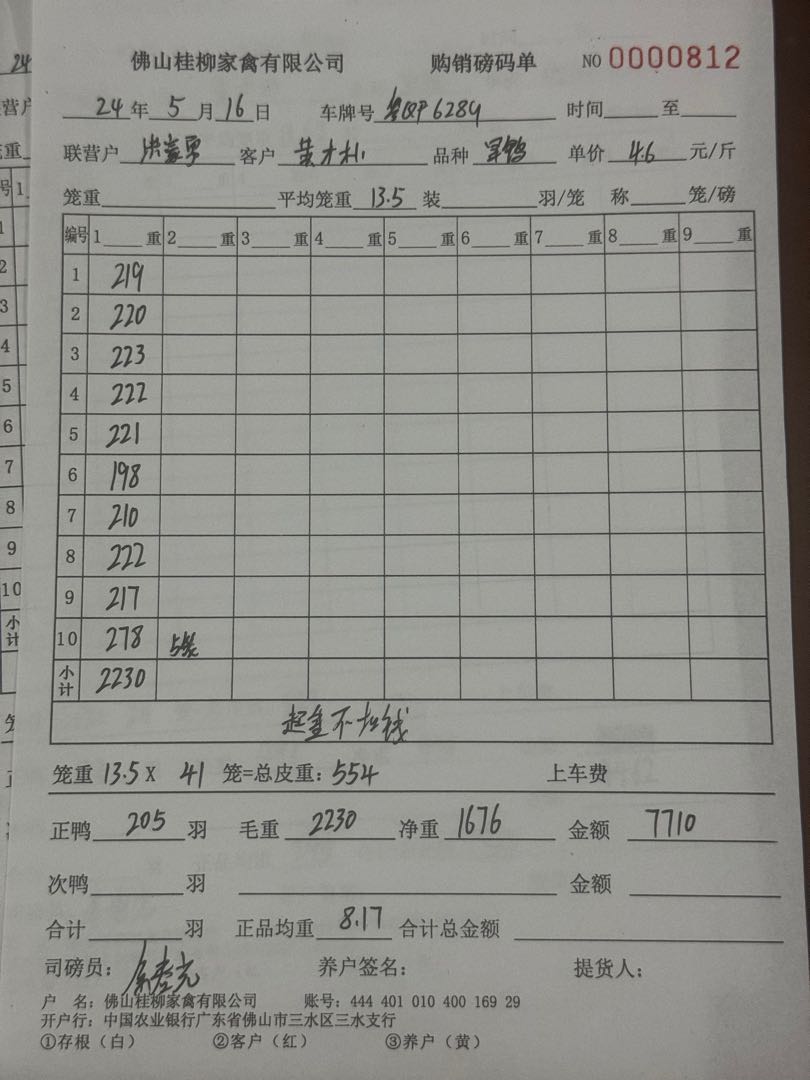 佛山桂柳家禽有限公司 购销磅码单 NO 0000812
24 年 5 月 16 日 车牌号 6289 时间 至
联营户 客户 黄才 品种 单价 4.6 元/斤
笼重 平均笼重 13.5 装 羽/笼 称 笼/磅
编号 1 重 2 重 3 重 4 重 5 重 6 重 7 重 8 重 9 重
1 219
2 220
3 223
4 222
5 221
6 198
7 210
8 222
9 217
10 278 5笼
小计 2230
超重不扣钱
笼重 13.5 X 41 笼=总皮重: 554 上车费
正鸭 205 羽 毛重 2230 净重 1676 金额 7710
次鸭 羽 金额
合计 羽 正品均重 8.17 合计总金额
司磅员: 养户签名: 提货人:
户 名: 佛山桂柳家禽有限公司 账号: 444 401 010 400 169 29
开户行: 中国农业银行广东省佛山市三水区三水支行
①存根(白) ②客户(红) ③养户(黄)